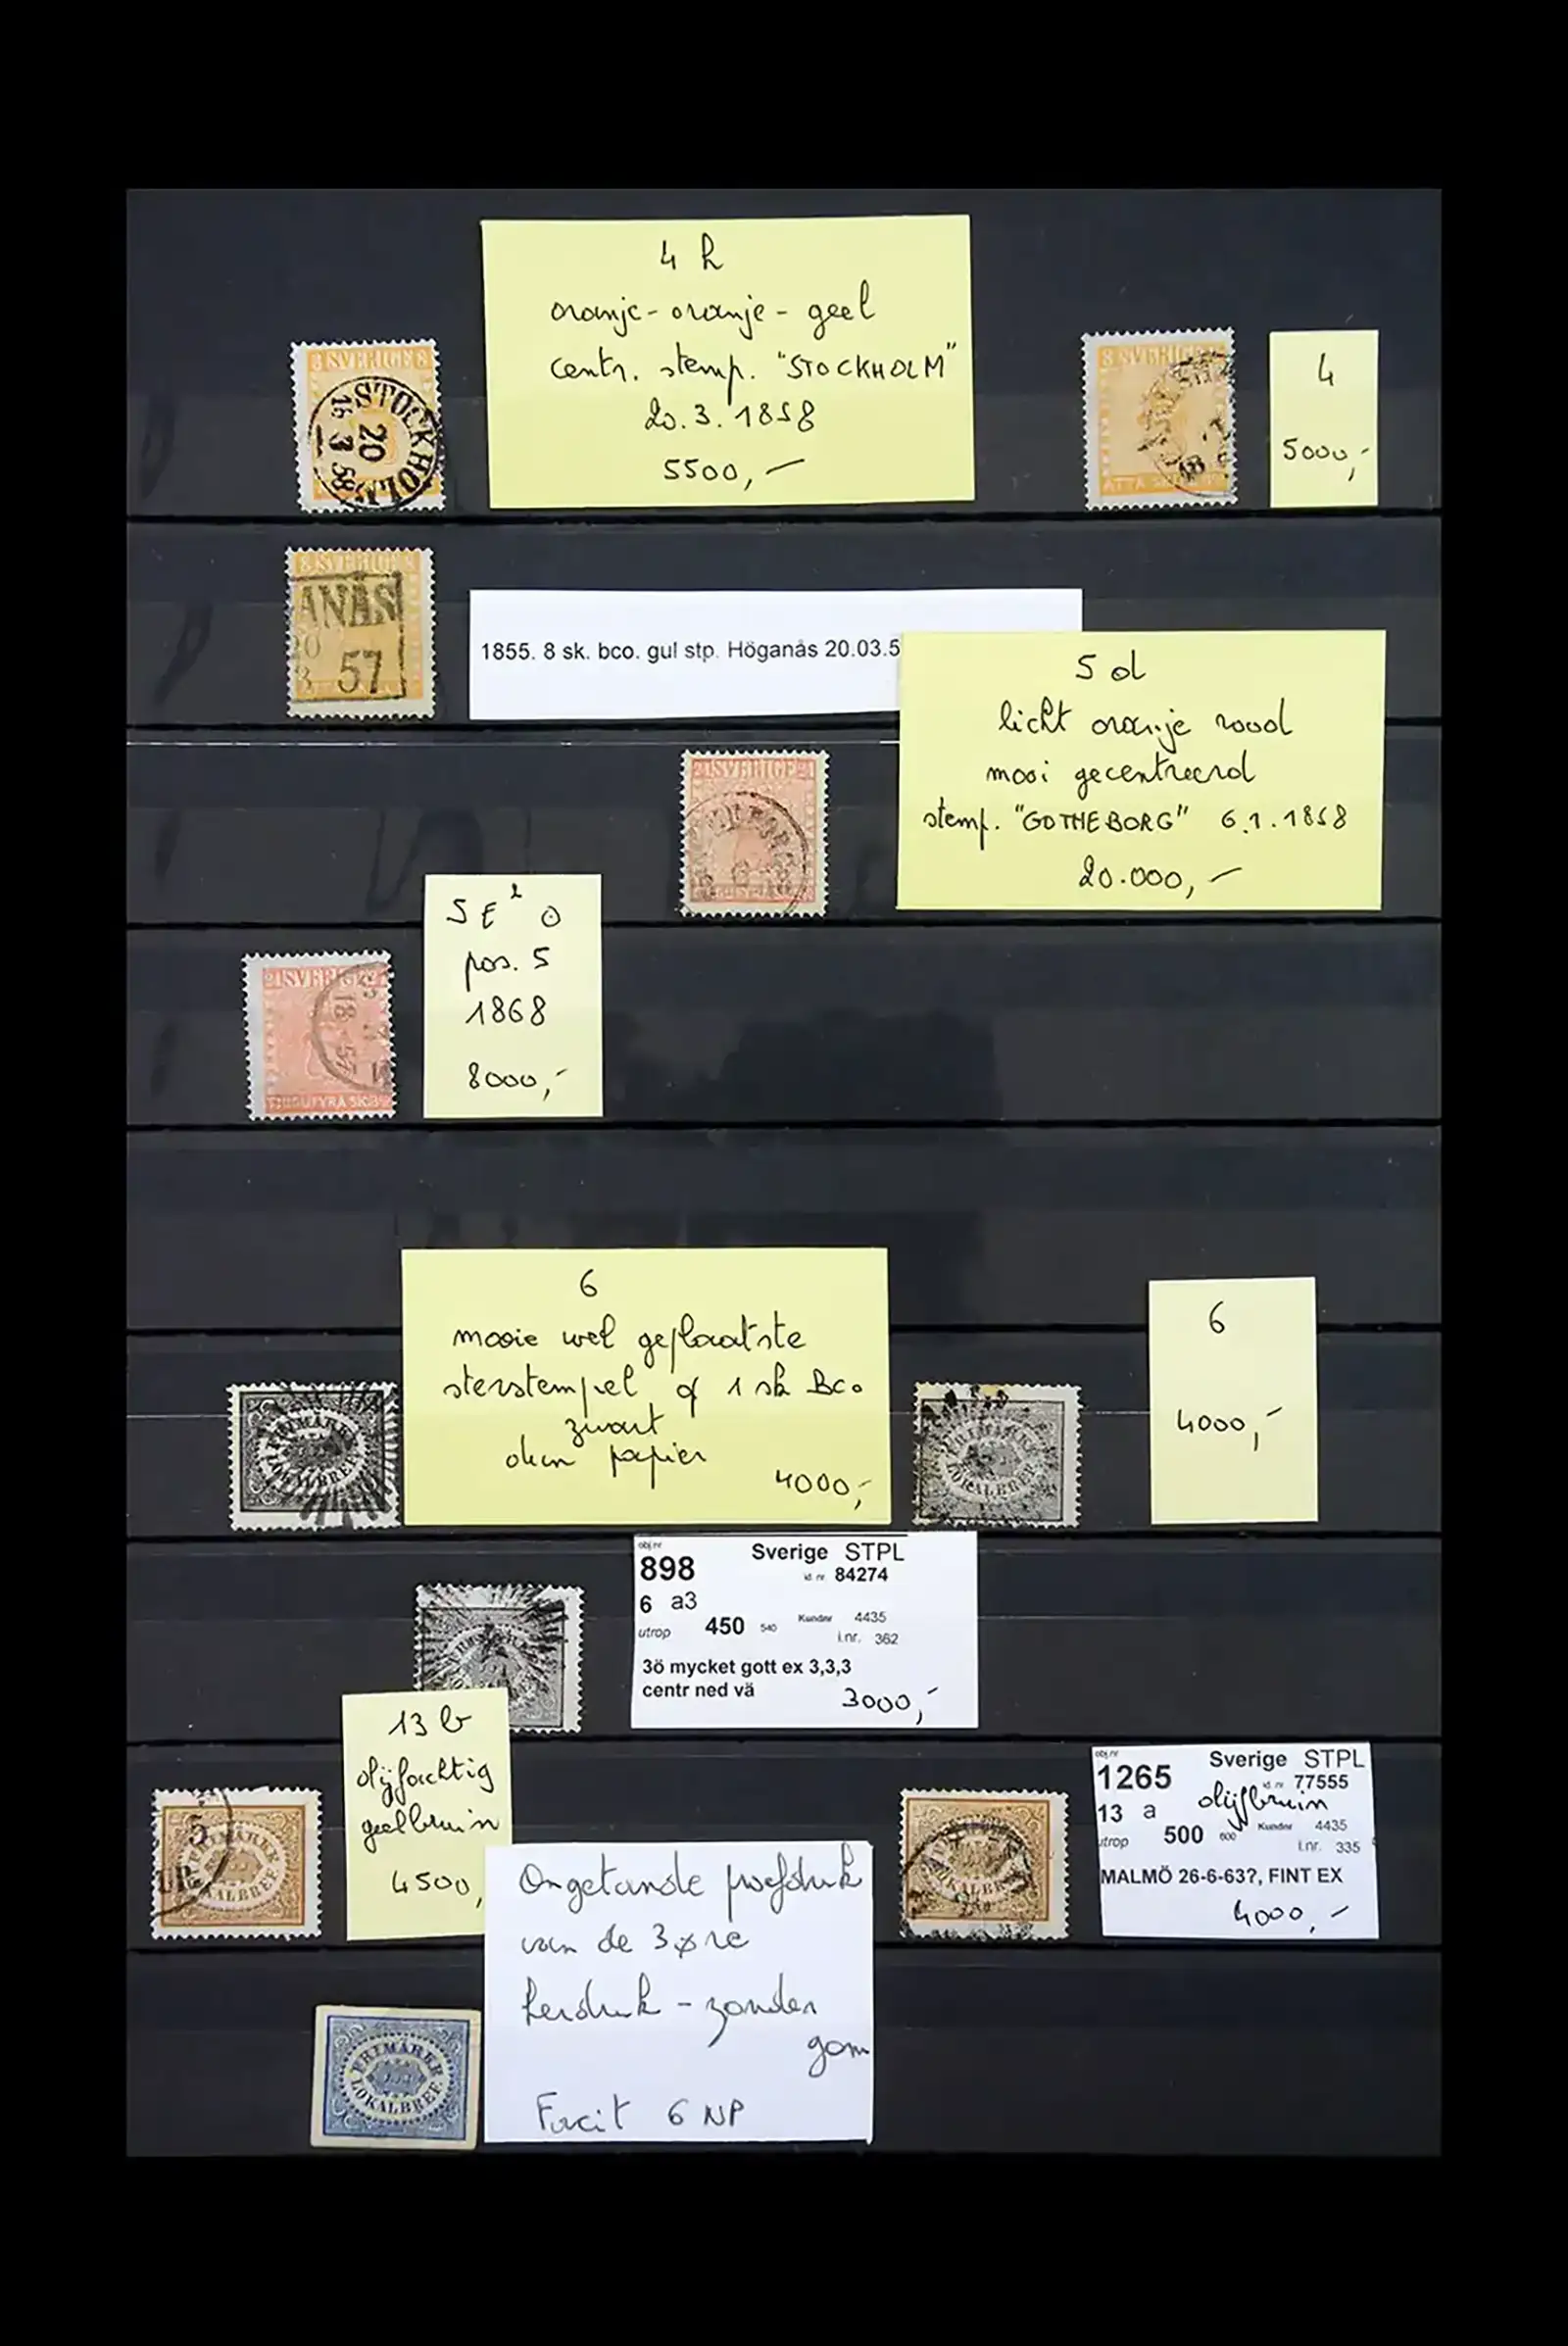 4 h
oranje-oranje-geel
centr. stemp. "STOCKHOLM"
20.3.1858
5500,-
8 SVERIGE 8
STOCKHOLM
20
3
8 SVERIGE
ÅTTA
4
5000,-
8 SVERIGE 8
ANÄS
20
57
1855. 8 sk. bco. gul stp. Höganäs 20.03.5
5 d
licht oranje rood
mooi gecentreerd
stemp. "GOTHEBORG" 6.1.1858
20.000,-
24 SVERIGE 24
6
5 E² 0
pos. 5
1868
8000,-
24 SVERIGE
18
57
TJUGUFYRA SK.
6
mooie wel geplaatste
sterstempel op 1 sk Bco
zwart
dun papier
4000,-
FRIMÄRKE
LOKALBREF
FRIMÄRKE
LOKALBREF
6
4000,-
obj.nr
Sverige STPL
898
id. nr 84274
6 a3
utrop 450 540 Kundnr 4435
i.nr. 362
3ö mycket gott ex 3,3,3
centr ned vä
3000,-
13 b
olijfachtig
geelbruin
4500,
5
FRIMÄRKE
LOKALBREF
LOKALBREF
obj.nr
Sverige STPL
1265
id. nr 77555
13 a olijfbruin
utrop 500 600 Kundnr 4435
i.nr. 335
MALMÖ 26-6-63?, FINT EX
4000,-
Ongetande proefdruk
van de 3 øre
herdruk - zonder
gom
Facit 6 NP
FRIMÄRKE
LOKALBREF